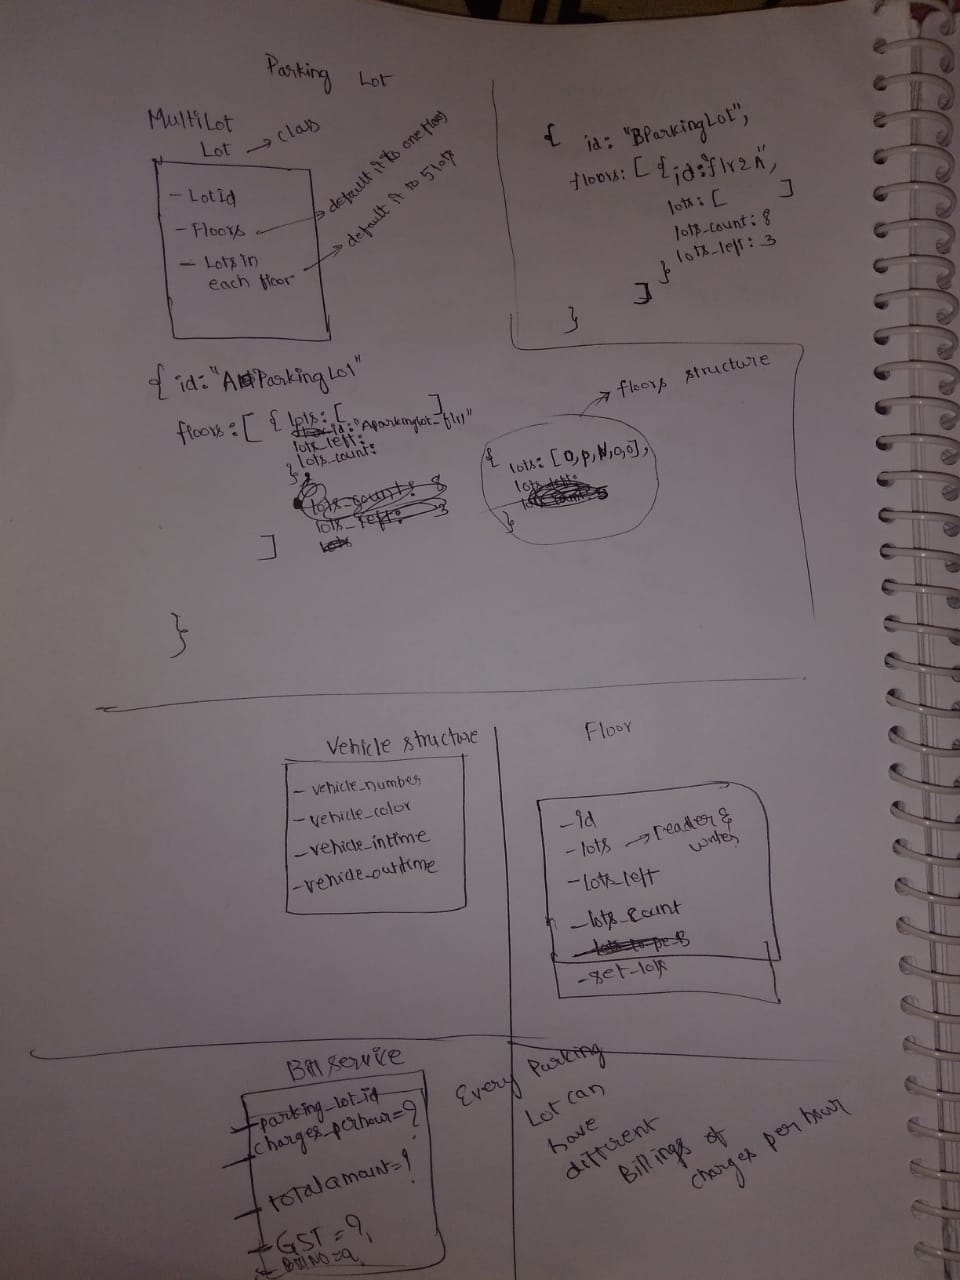 Parking Lot
MultiLot
Lot → class
- Lot id
- Floors
- Lots in
each floor
default it to one floor
default it to 5 lots
{ id: "BParkingLot",
floors: [ { id: "flr2A",
lots: [ ]
lots_count: 8
lots_left: 3
}
]
}
{ id: "AParkingLot"
floors: [ { lots: [ ]
id: "Aparkinglot_flr1"
lots_left:
lots_count:
}
lots_count: 8
lots_left: 3
lots
]
}
floors structure
{ lots: [O,P,N,O,O],
lots_left:
}
Vehicle structure
- vehicle_number
- vehicle_color
- vehicle_intime
- vehicle_outtime
Floor
- id
- lots → reader &
writer
- lots_left
- lots_count
- set_lots
Bill service
parking_lot_id
charges_perhour = ?
total amount = ?
GST = ?,
Bill NO = ?
Every Parking
Lot can
have
different
Billings of
charges per hour